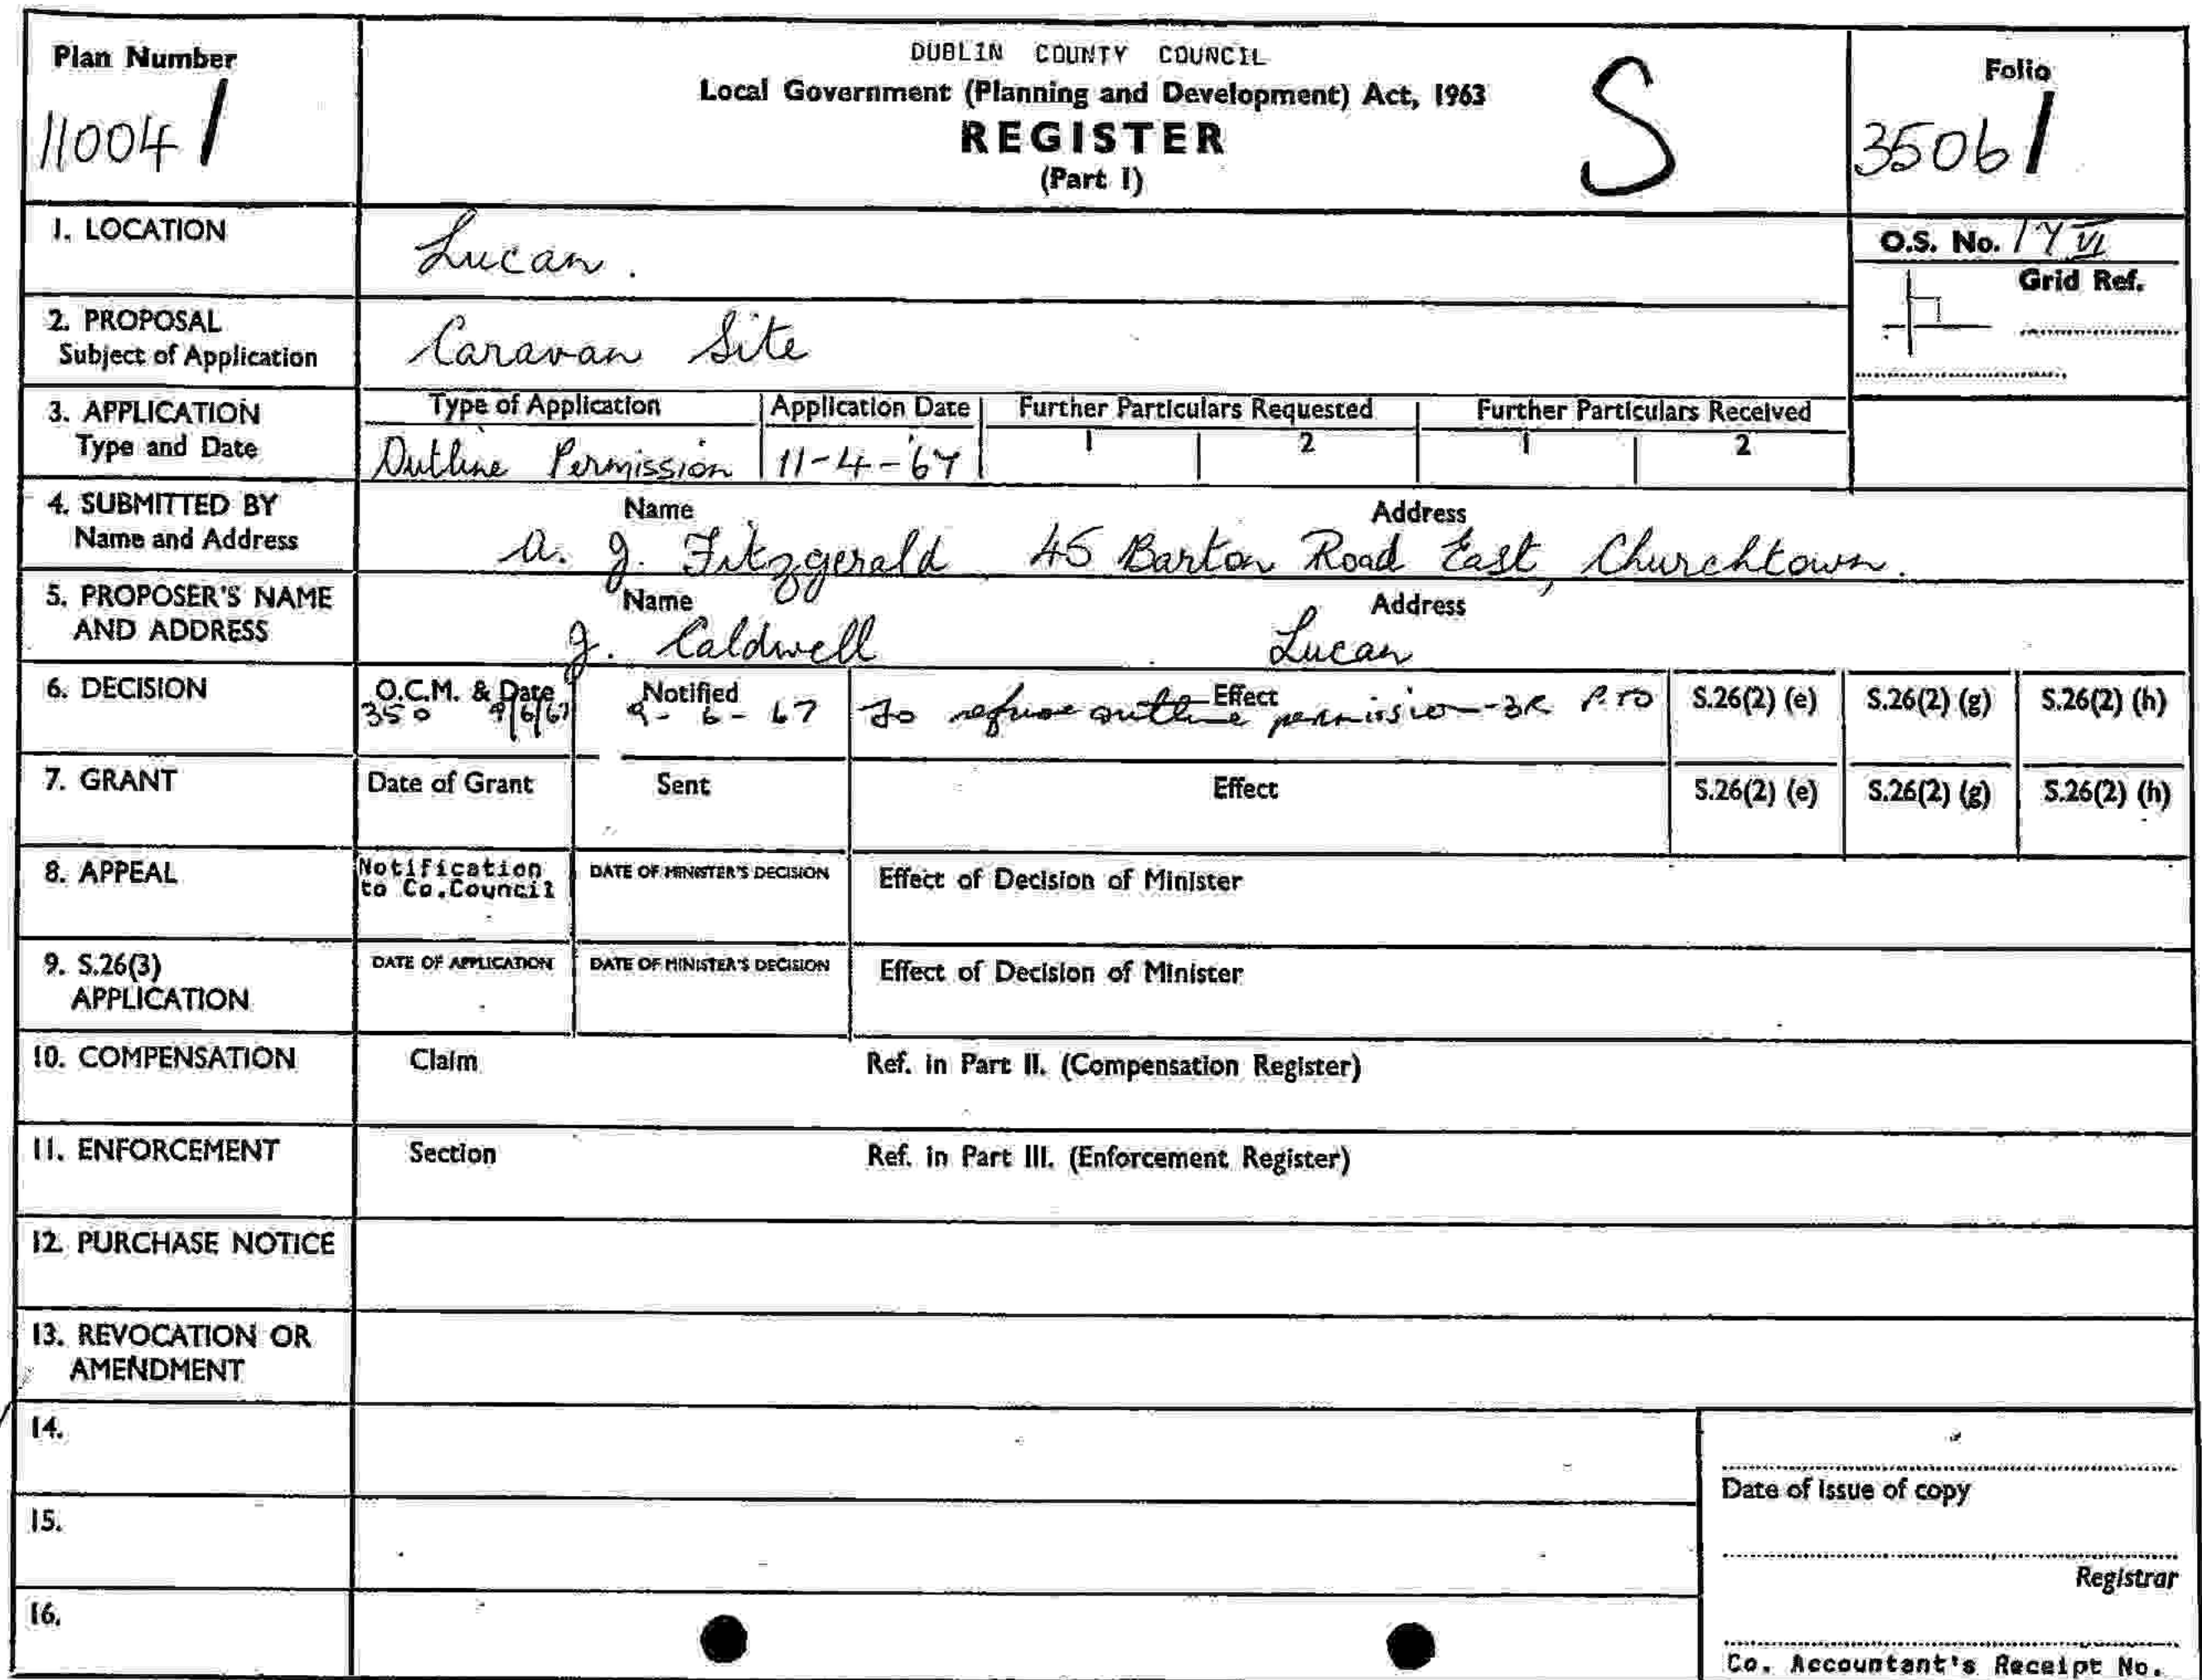 Plan Number
11004/
DUBLIN COUNTY COUNCIL
Local Government (Planning and Development) Act, 1963
REGISTER
(Part I)
S
Folio
3506/
1. LOCATION
Lucan.
O.S. No. 17 VI
Grid Ref.
2. PROPOSAL
Subject of Application
Caravan Site
3. APPLICATION
Type and Date
Type of Application
Outline Permission
Application Date
11-4-'67
Further Particulars Requested
1 2
Further Particulars Received
1 2
4. SUBMITTED BY
Name and Address
Name Address
A. J. Fitzgerald 45 Barton Road East, Churchtown.
5. PROPOSER'S NAME
AND ADDRESS
Name Address
J. Caldwell Lucan
6. DECISION
O.C.M. & Date
350 9/6/67
Notified
9-6-67
Effect
To refuse outline permission-3R P.T.O
S.26(2) (e) S.26(2) (g) S.26(2) (h)
7. GRANT
Date of Grant Sent Effect S.26(2) (e) S.26(2) (g) S.26(2) (h)
8. APPEAL
Notification
to Co.Council
DATE OF MINISTER'S DECISION Effect of Decision of Minister
9. S.26(3)
APPLICATION
DATE OF APPLICATION DATE OF MINISTER'S DECISION Effect of Decision of Minister
10. COMPENSATION Claim Ref. in Part II. (Compensation Register)
11. ENFORCEMENT Section Ref. in Part III. (Enforcement Register)
12. PURCHASE NOTICE
13. REVOCATION OR
AMENDMENT
14.
Date of issue of copy
15.
Registrar
16.
Co. Accountant's Receipt No.